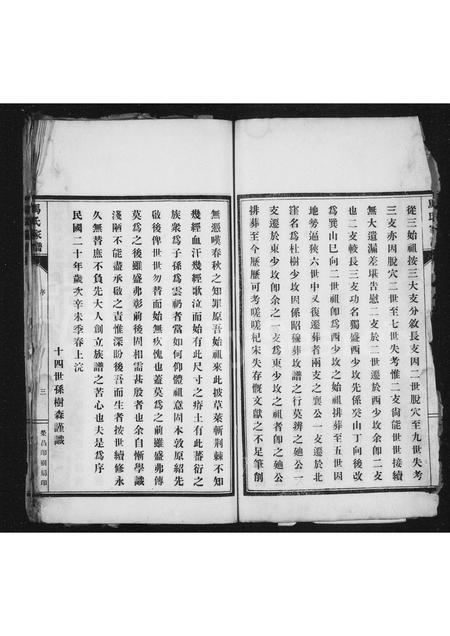 從三始祖按三大支分敘長支因二世脫穴至九世失考
三支亦因脫穴二世至七世失考惟二支尙能世世接續
無大遺漏差堪告慰二支於二世遷於西少坟余卽二支
也二支較長三支功名獨盛西少坟先係癸山丁向後改
爲巽山巳向二世祖卽爲西少坟之始祖排葬至五世因
地勢逼狹六世中又復遷葬者兩支之襄公一支遷於北
窪名爲杜樹少坟因係昭穆葬坟譜之行莫辨之她公一
支遷於東少坟卽余之一支爲東少坟之祖者卽之她公
排葬至今歷歷可考嗟嗟杞宋失存慨文獻之不足筆創
無憑嘆春秋之知罪原吾始祖來此披草萊斬荆棘不知
幾經血汗幾經歌泣而始有此尺寸之瘠土有此蕃衍之
族衆爲子孫爲雲礽者當如何仰體祖意固本敦原紹先
啟後俾世世勿替而始無疚愧也蓋莫爲之前雖盛弗傳
莫爲之後雖盛弗彰前後固相需甚殷者也余自慚學識
淺陋不能盡承啟之責惟深盼後吾而生者按世續修永
久無替庶不負先大人創立族譜之苦心也夫是爲序
民國二十年歲次辛未季春上浣
十四世孫樹森謹識
馬氏家譜
序
三
榮昌印刷局印